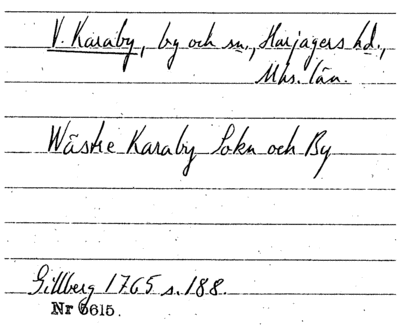 V. Karaby, by och sn., Harjagers hd.,
Mhs. län.
Wästre Karaby Sokn och By
Gillberg 1765 s. 188.
Nr 6615.